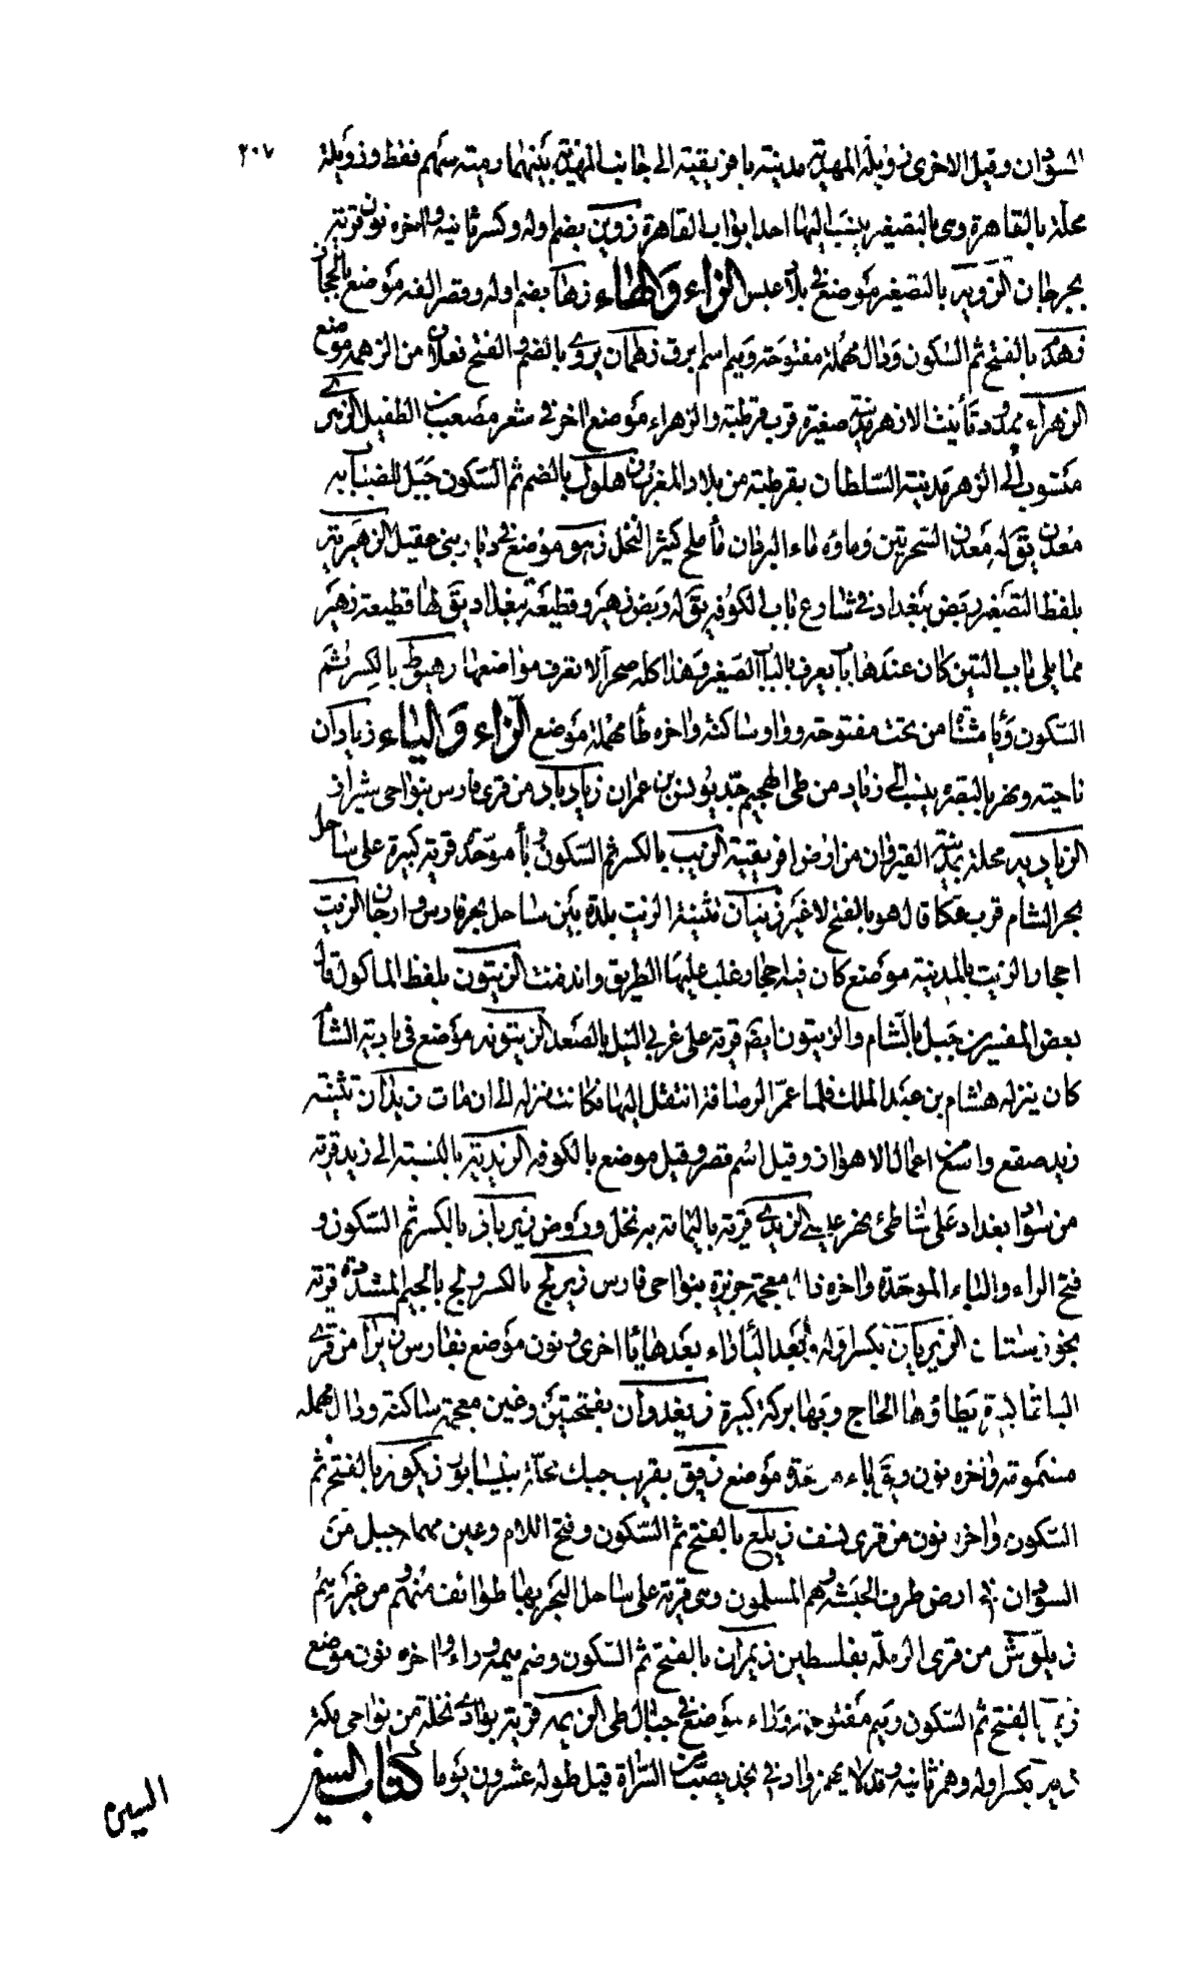 ٢٠٧
السودان وقيل الاخرى زويلة المهدية مدينة بافريقية الى جانب المهدية بينهما رمية سهم فقط وزويلة
محلة بالقاهرة وهى بالتصغير ينسب اليها احد ابواب القاهرة زوين بضم اوله وكسر ثانيه واخره نون قرية
بجرجان الزوير بالتصغير موضع في بلاد عبس الزاء والهاء زها بضم اوله وقصر الفه موضع بالحجاز
زهدم بالفتح ثم السكون ودال مهملة مفتوحة وميم اسم ابرق زهمان يروى بالضم والفتح فعلان من الزهمة موضع
الزهراء ممدود تأنيث الازهر مدينة صغيرة قرب قرطبة والزهراء موضع اخر في شعر مصعب بن الطفيل الزهرى
منسوب الى الزهر مدينة السلطان بقرطبة من بلاد المغرب زهلول بالضم ثم السكون جبل للضباب به
معدن يق له معدن الشجرتين وماؤه ماء البردان ماء ملح كثير النخل زهو موضع في ديار بنى عقيل الزهيرية
بلفظ التصغير ربض ببغداد في شارع باب الكوفة يق له ربض زهير وقطيعة ببغداد يق لها قطيعة زهير
مما يلى باب التين كان عندها باب يعرف بالباب الصغير وهذا كله صحرا لا تعرف مواضعها زهيوط بالكسر ثم
السكون وياء مثناة من تحت مفتوحة وواو ساكنة واخره طا مهملة موضع الزاء والياء زيادان
ناحية ونهر بالبصرة ينسب الى زياد من طى الهجيم جد يونس بن عمران زياداباد من قرى فارس بنواحى شيراز
الزيادية محلة بمدينة القيروان من ارض افريقية الزيب بالكسر ثم السكون وباء موحدة قرية كبيرة على ساحل
بحر الشام قرب عكا قال هو بالفتح لا غير زيتان تثنية الزيت بلدة بين ساحل بحر فارس وارجان الزيت
احجار الزيت بالمدينة موضع كان فيه احجار غلب عليها الطريق واندفنت الزيتون بلفظ الماكول قال
بعض المفسرين جبل بالشام والزيتون ايضا قرية على غربى النيل بالصعيد الزيتونة موضع فى بادية الشام
كان ينزله هشام بن عبد الملك فلما عمر الرصافة انتقل اليها فكانت منزله الى ان مات زيدان تثنية
زيد صقع واسع من اعمال الاهواز وقيل اسم قصر وقيل موضع بالكوفة الزيدية بالنسبة الى زيد قرية
من سواد بغداد على شاطئ نهر عيسى الزيدى قرية باليمامة به نخل وروض زيرباذ بالكسر ثم السكون و
فتح الراء والباء الموحدة واخره ذال معجمة جزيرة بنواحى فارس زيرج بالكسر ولج بالجيم المشددة قرية
بخوزستان الزيريان بكسر اوله وبعد الياء راء بعدها يا اخرى ونون موضع بفارس زيزا من قرى
البلقا كبيرة يطاؤها الحاج وبها بركة كبيرة زيغدوان بفتحتين وغين معجمة ساكنة ودال مهملة
مضمومة واخره نون وقبله باء موحدة موضع زيق بقرب جبك محلة بنيسابور زيكون بالفتح ثم
السكون واخره نون من قرى نسف زيلع بالفتح ثم السكون وفتح اللام وعين مهملة جبل من
السودان في ارض طرف الحبشة وهم المسلمون وهى قرية على ساحل البحر بها طوائف منهم ومن غيرهم
زيلوش من قرى الرملة بفلسطين زيمران بالفتح ثم السكون وضم ميمه وراء واخره نون موضع
زيمر بالفتح ثم السكون وميم مفتوحة وراء موضع في جبال طى الزيمة قرية بوادى نخلة من نواحى مكة
بكسر اوله وهمز ثانيه وقد لا يهمز واد في نجد يصب من السراة قيل طوله عشرون يوما كتاب السين
السين